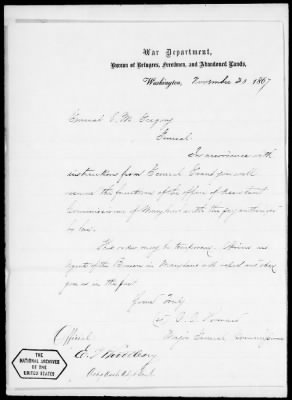 War Department,
Bureau of Refugees, Freedmen, and Abandoned Lands,
Washington, November 20 1867
General E. M. Gregory
General
In accordance with
instructions from General Grant you will
resume the functions of the office of Assistant
Commissioner of Maryland with the pay authorized
by law.
This order may be temporary.
agents of the Bureau in Maryland will report and obey
you as in the past
Yours Truly
O. O. Howard
Major General Commissioner
Official
E. Woodbury
THE
NATIONAL ARCHIVES
OF THE
UNITED STATES